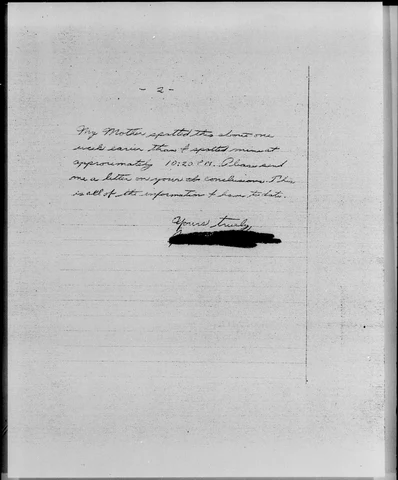 - 2 -
My Mother spotted this about one
week earier than I spotted mine at
approximately 10:20 P.M. Please send
me a letter on your conclusions. This
is all of the information I have to date.
Yours truely,